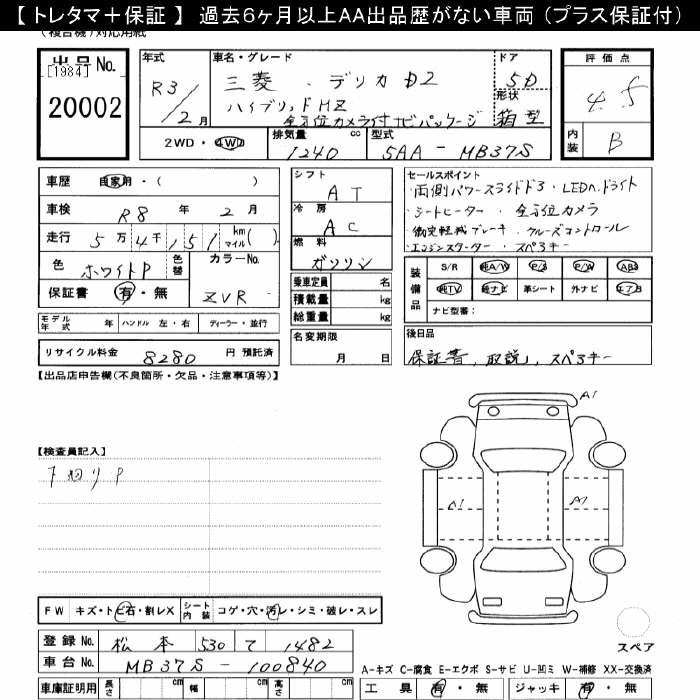 【 トレタマ＋保証 】 過去6ヶ月以上AA出品歴がない車両 （プラス保証付）
（複合機）対応用紙
出品 No.
[1984]
20002
年式
R3 / 2 月
車名・グレード
三菱 . デリカ D2
ハイブリッド MZ
全方位カメラ付ナビパッケージ
ドア
5D
形状
箱型
2WD ・ 4WD
排気量 cc
1240
型式
5AA - MB37S
評価点
4.5
内装
B
車歴 自家用・( )
車検 R8 年 2 月
走行 5 万 4 千 1 5 1 km マイル ( )
色 ホワイトP 色替
カラーNo.
ZVR
保証書 有・無
シフト
AT
冷房
AC
燃料
ガソリン
乗車定員 名
積載量 kg
総重量 kg
セールスポイント
・両側パワースライドドア ・LEDヘッドライト
・シートヒーター ・ 全方位カメラ
衝突軽減ブレーキ ・クルーズコントロール
エンジンスターター ・ スペアキー
装備品
S/R 純A/W P/S P/W ABS
純TV 純ナビ 革シート 外ナビ エアB
ナビ型番：
モデル年式 年 ハンドル 左・右 ディーラー・並行
リサイクル料金 8280 円 預託済
名変期限
月 日
後日品
保証書 , 取説 , スペアキー
【出品店申告欄(不良箇所・欠品・注意事項等)】
【検査員記入】
下廻りP
A1
A1
A1
FW キズ・トビ石・割レX
シート内装 コゲ・穴・汚レ・シミ・破レ・スレ
登録 No. 松本 530 て 1482
車台 No. MB37S - 100840
車庫証明用 長さ cm 幅 cm 高さ cm
スペア
A-キズ C-腐食 E-エクボ S-サビ U-凹ミ W-補修 XX-交換済
工具 有・無 ジャッキ 有・無